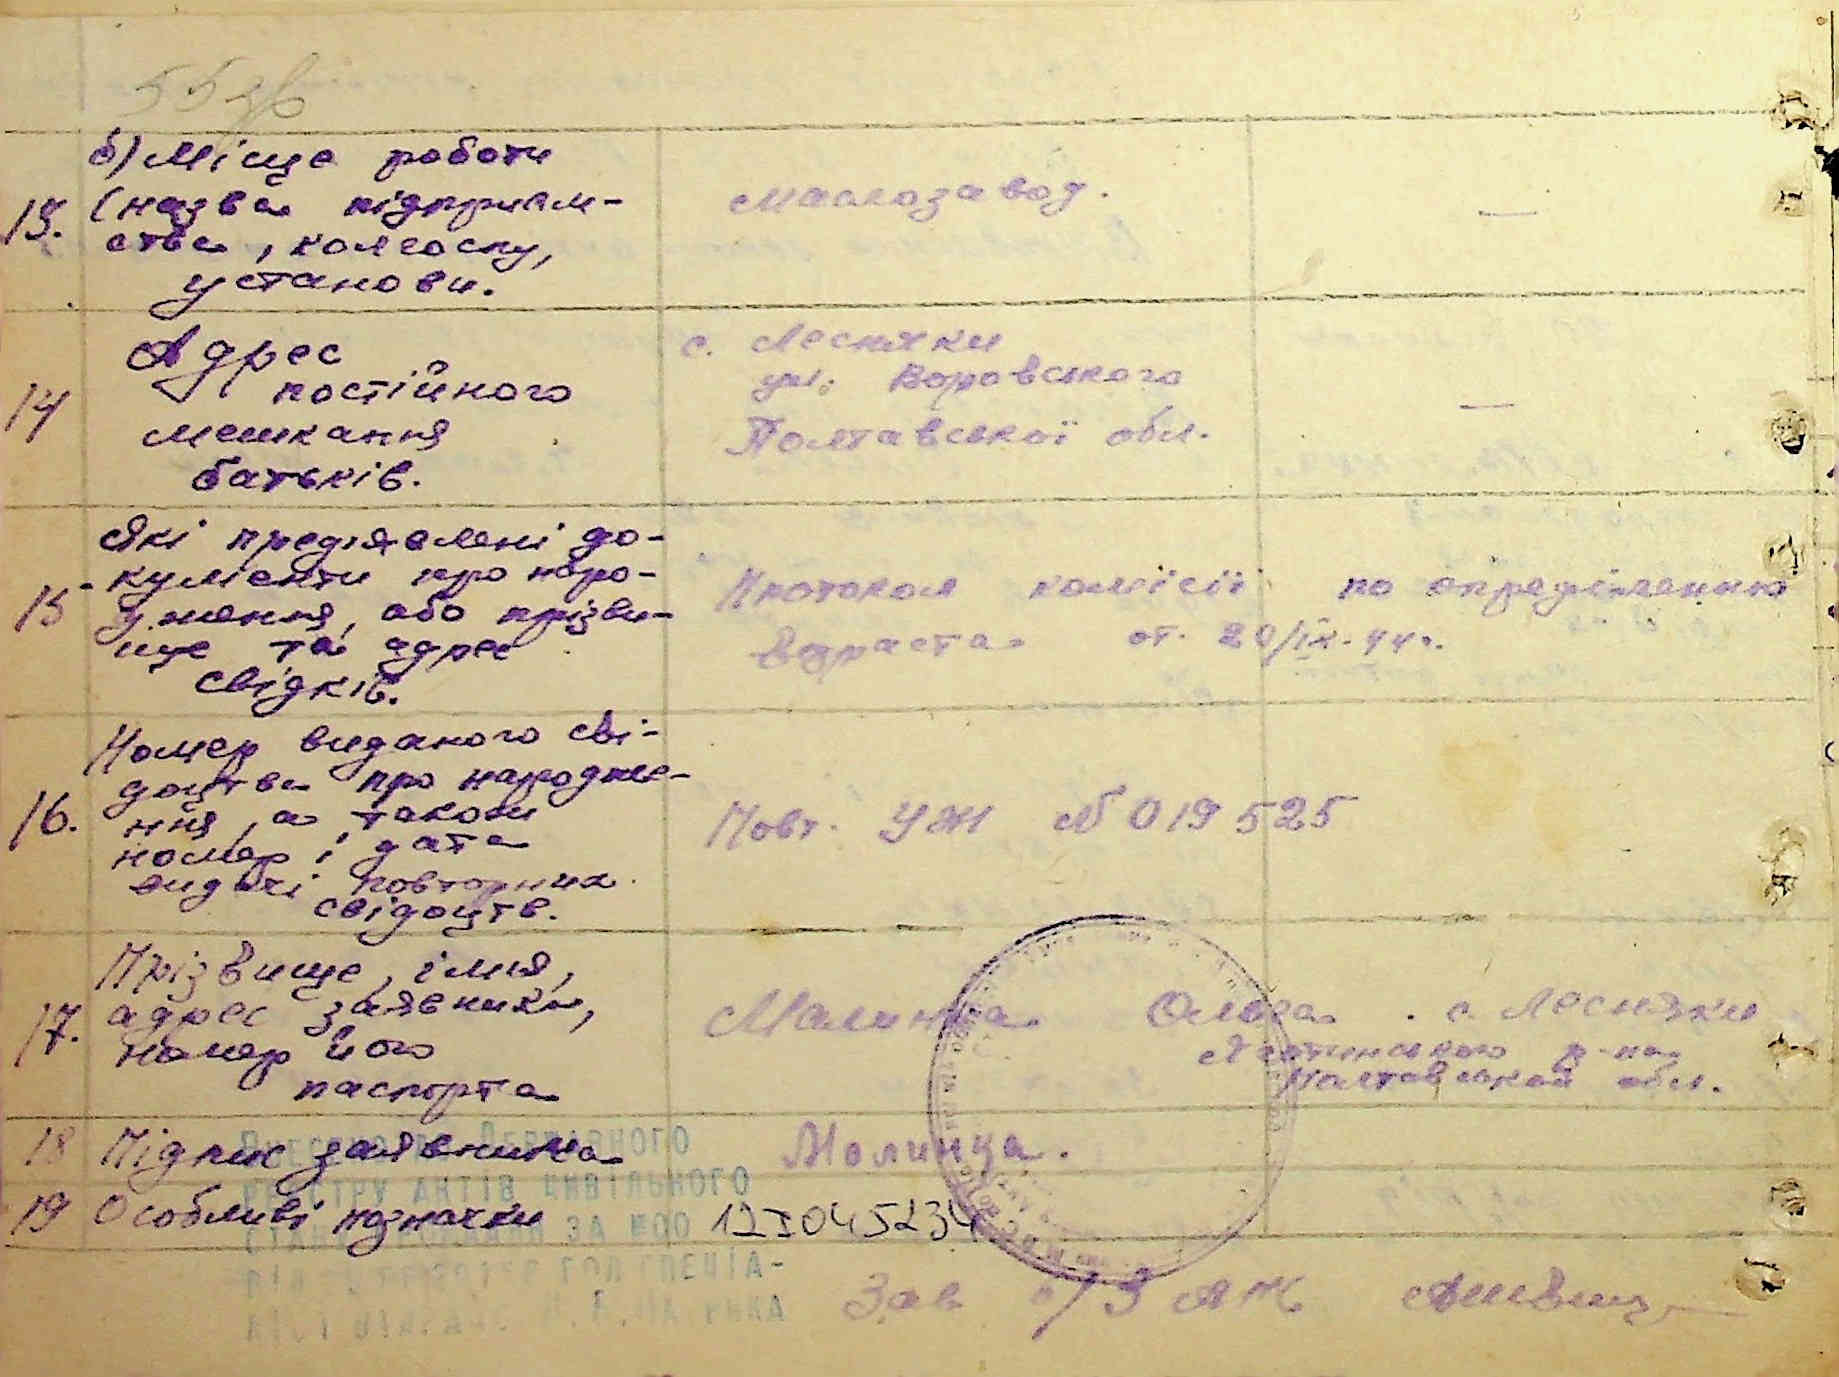 55зв
б) Місце роботи
13. (назва підприєм-
ства, колгоспу,
установи.
Маслозавод.
—
14 Адрес
постійного
мешкання
батьків.
с. Лесняки
ул. Воровського
Полтавської обл.
—
15 Які предʼявлені до-
кументи про наро-
дження, або прізви-
ще та адрес
свідків.
Протокол комісії по определенню
возраста от 20/IX-44г.
16. Номер виданого сві-
доцтва про народже-
ння, а також
номер і дата
видачі повторних
свідоцтв.
Повт. УЖ № 019525
17. Прізвище, імʼя,
адрес заявника,
номер його
паспорта
Малинка Ольга. с. Лесняки
р-на
Полтавской обл.
18 Підпис заявника
Малинца.
19 Особливі позначки
12I045234
Державного
реєстру актів цивільного
стану за №00
Зав АЖ